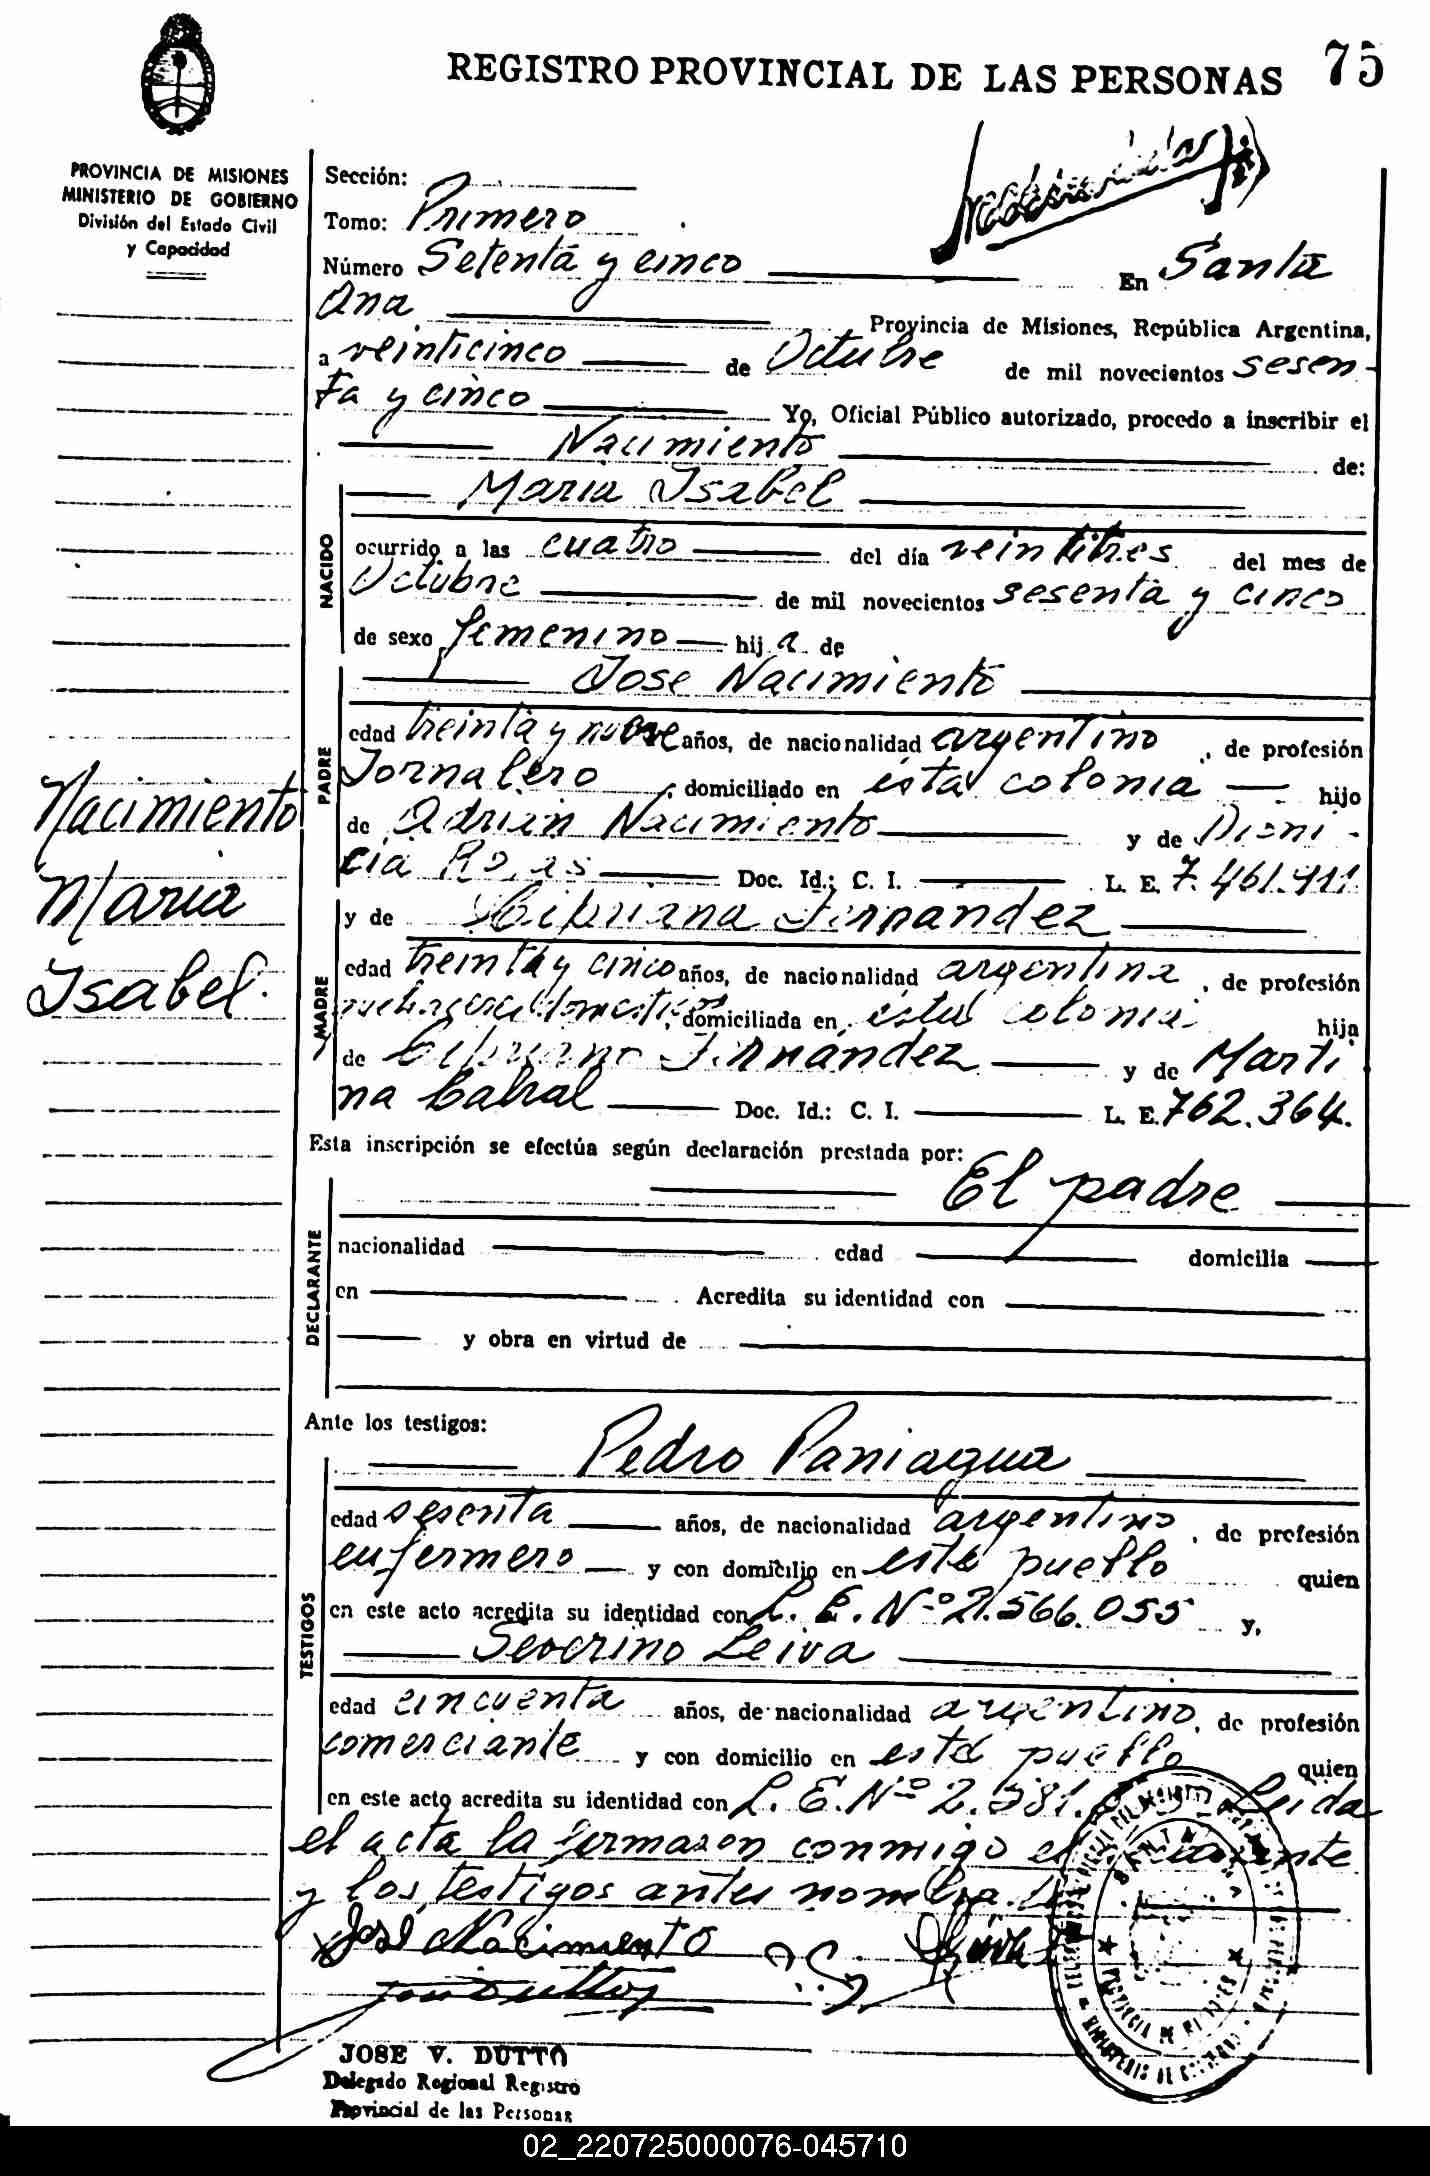 REGISTRO PROVINCIAL DE LAS PERSONAS 75
PROVINCIA DE MISIONES
MINISTERIO DE GOBIERNO
División del Estado Civil
y Capacidad
Sección:
Tomo: Primero
Número Setenta y cinco En Santa
Ana Provincia de Misiones, República Argentina,
a veinticinco de Octubre de mil novecientos sesen-
ta y cinco Yo, Oficial Público autorizado, procedo a inscribir el
Nacimiento de:
Maria Isabel
NACIDO
ocurrido a las cuatro del día veintitres del mes de
Octubre de mil novecientos sesenta y cinco
de sexo femenino hija de
Jose Nacimiento
PADRE
edad treinta y nueve años, de nacionalidad argentino, de profesión
Jornalero, domiciliado en esta colonia hijo
de Adrian Nacimiento y de Dioni-
cia Rojas Doc. Id.: C. I. L. E. 7.461.911
Nacimiento
Maria
Isabel.
y de Cipriana Fernandez
MADRE
edad treinta y cinco años, de nacionalidad argentina, de profesión
domiciliada en esta colonia hija
de Cipriano Fernández y de Marti
na Cabral Doc. Id.: C. I. L. E. 762.364.
Esta inscripción se efectúa según declaración prestada por:
El padre
DECLARANTE
nacionalidad edad domicilia
en Acredita su identidad con
y obra en virtud de
Ante los testigos:
Pedro Paniagua
TESTIGOS
edad sesenta años, de nacionalidad argentino, de profesión
enfermero y con domicilio en este pueblo quien
en este acto acredita su identidad con L. E. Nº 2.566.055 y,
Severino Leiva
edad cincuenta años, de nacionalidad argentino, de profesión
comerciante y con domicilio en este pueblo quien
en este acto acredita su identidad con L. E. Nº 2.581. Leida
el acta la firmaron conmigo el
y los testigos antes
José Nacimiento
SANTA ANA
PROVINCIA DE MISIONES
JOSE V. DUTTO
Delegado Regional Registro
Provincial de las Personas
02_220725000076-045710